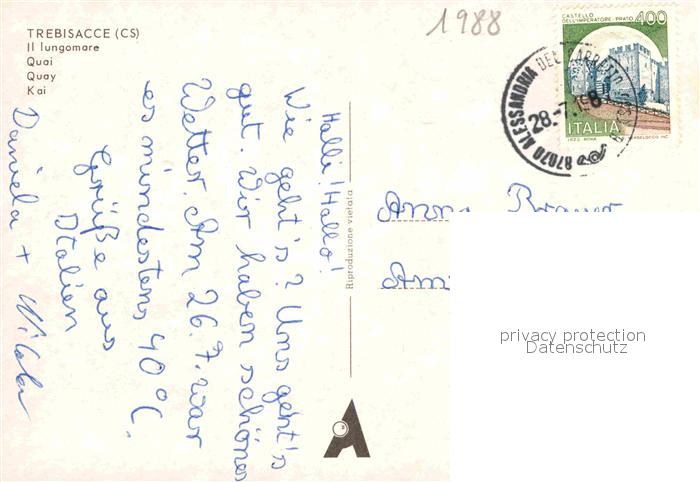 TREBISACCE (CS)
Il lungomare
Quai
Quay
Kai
1988
CASTELLO
DELL'IMPERATORE - PRATO 400
ITALIA
87070 ALESSANDRIA DEL CARRETTO
28.-7.1988
Halli! Hallo!
Wie geht's? Uns geht's
gut. Wir haben schönes
Wetter. Am 26.7. war
es mindestens 40°C.
Grüße aus
Italien
Daniela +
Riproduzione vietata
Anna
privacy protection
Datenschutz